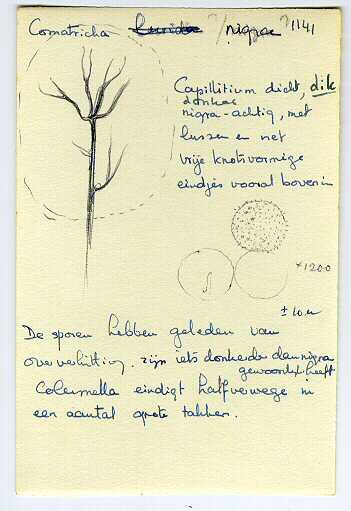 Comatricha lurida ?/ nigra ? 1141
Capillitium dicht, dik
donker
nigra-achtig, met
lussen en met
vrije knotsvormige
eindjes vooral bovenin
×1200
± 10 µ
De sporen hebben geleden van
oververhitting. zijn iets donkerder dan nigra
gewoonlijk heeft
Columella eindigt halfverwege in
een aantal grote takken.